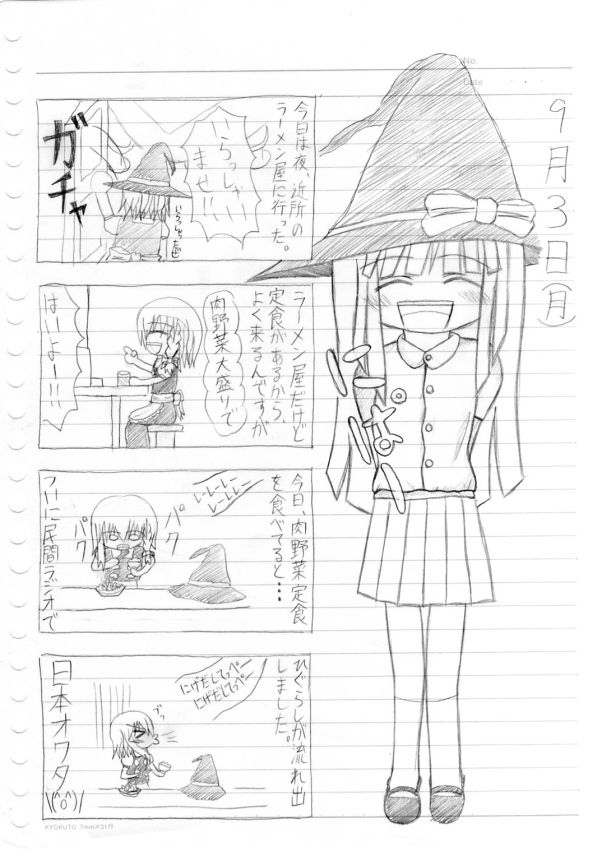 No.
Date
9月3日(月)
今日は夜、近所の
ラーメン屋に行った。
いらっしゃい
ませ!!
いらっしゃいませ
ガチャ
ラーメン屋だけど
定食があるから、
よく来るんですが
肉野菜大盛りで
はいよー!!
今日、肉野菜定食
を食べてると・・・
レーレーレー
レーレレー
パク
パク
ついに民間ラジオで
ひぐらしが流れ出
しました。
にげだしてっぺー
にげだしてっぺー
ブッ
日本オワタ
\(^o^)/